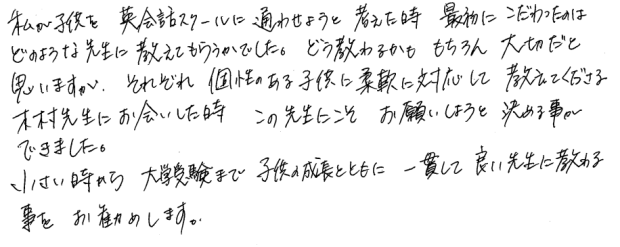 私が子供を 英会話スクールに 通わせようと 考えた時 最初に こだわったのは
どのような先生に 教えてもらうかでした。どう教わるかも もちろん 大切だと
思いますが、それぞれ 個性のある 子供に 柔軟に対応して 教えてくださる
木村先生に お会いした時 この先生にこそ お願いしようと 決める事が
できました。
小さい時から 大学受験まで 子供の成長とともに 一貫して 良い先生に教わる
事を お勧めします。